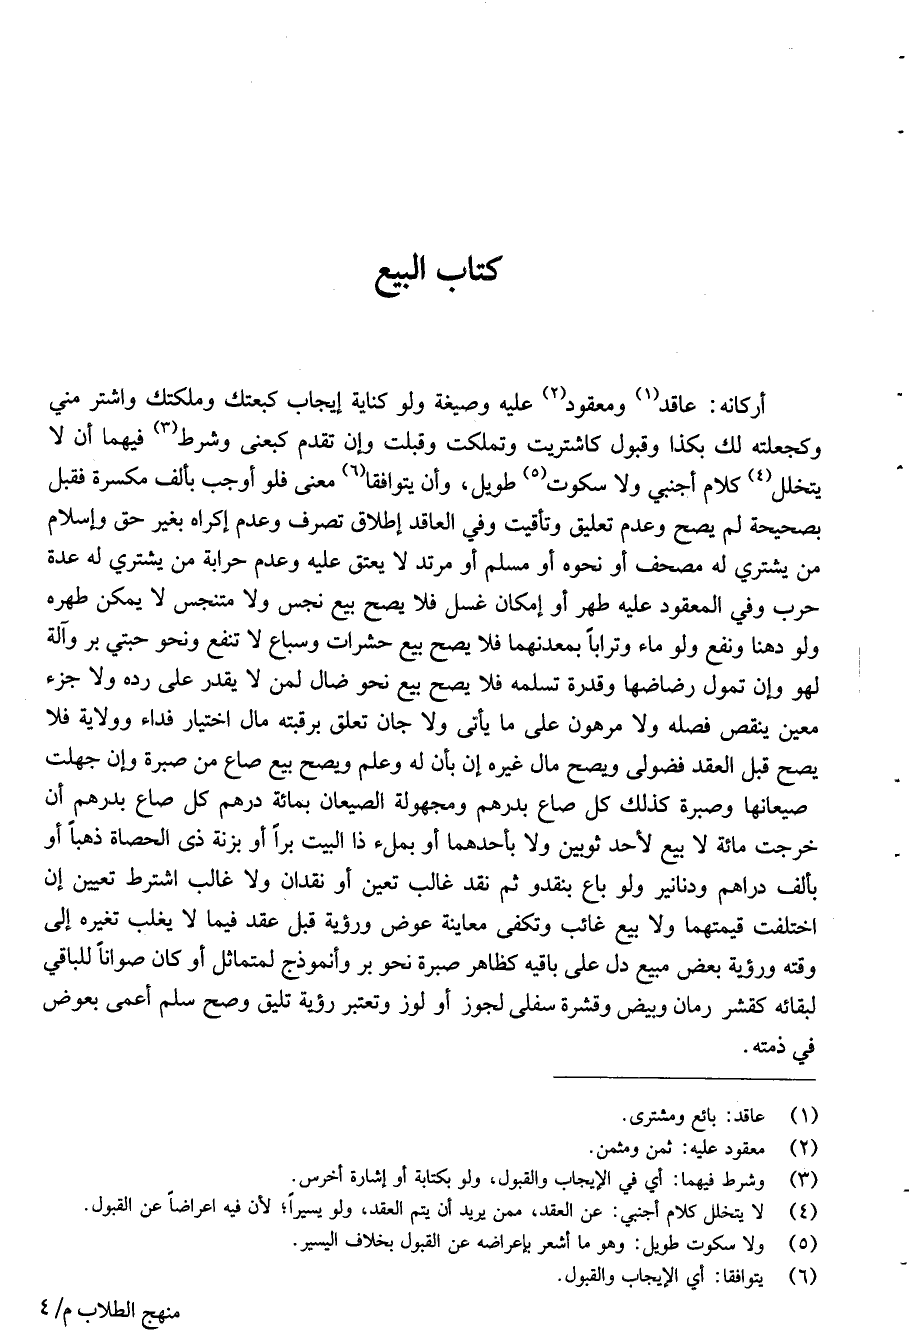 كتاب البيع
أركانه: عاقد(١) ومعقود(٢) عليه وصيغة ولو كناية إيجاب كبعتك وملكتك واشتر مني
وكجعلته لك بكذا وقبول كاشتريت وتملكت وقبلت وإن تقدم كبعنى وشرط(٣) فيهما أن لا
يتخلل(٤) كلام أجنبي ولا سكوت(٥) طويل، وأن يتوافقا(٦) معنى فلو أوجب بألف مكسرة فقبل
بصحيحة لم يصح وعدم تعليق وتأقيت وفي العاقد إطلاق تصرف وعدم إكراه بغير حق وإسلام
من يشتري له مصحف أو نحوه أو مسلم أو مرتد لا يعتق عليه وعدم حرابة من يشتري له عدة
حرب وفي المعقود عليه طهر أو إمكان غسل فلا يصح بيع نجس ولا متنجس لا يمكن طهره
ولو دهنا ونفع ولو ماء وتراباً بمعدنهما فلا يصح بيع حشرات وسباع لا تنفع ونحو حبتي بر وآلة
لهو وإن تمول رضاضها وقدرة تسلمه فلا يصح بيع نحو ضال لمن لا يقدر على رده ولا جزء
معين ينقص فصله ولا مرهون على ما يأتى ولا جان تعلق برقبته مال اختيار فداء وولاية فلا
يصح قبل العقد فضولى ويصح مال غيره إن بأن له وعلم ويصح بيع صاع من صبرة وإن جهلت
صيعانها وصبرة كذلك كل صاع بدرهم ومجهولة الصيعان بمائة درهم كل صاع بدرهم أن
خرجت مائة لا بيع لأحد ثوبين ولا بأحدهما أو بملء ذا البيت براً أو بزنة ذى الحصاة ذهباً أو
بألف دراهم ودنانير ولو باع بنقدو ثم نقد غالب تعين أو نقدان ولا غالب اشترط تعيين إن
اختلفت قيمتهما ولا بيع غائب وتكفى معاينة عوض ورؤية قبل عقد فيما لا يغلب تغيره إلى
وقته ورؤية بعض مبيع دل على باقيه كظاهر صبرة نحو بر وأنموذج لمتماثل أو كان صواناً للباقي
لبقائه كقشر رمان وبيض وقشرة سفلى لجوز أو لوز وتعتبر رؤية تليق وصح سلم أعمى بعوض
في ذمته.
(١) عاقد: بائع ومشترى.
(٢) معقود عليه: ثمن ومثمن.
(٣) وشرط فيهما: أي في الإيجاب والقبول، ولو بكتابة أو إشارة أخرس.
(٤) لا يتخلل كلام أجنبي: عن العقد، ممن يريد أن يتم العقد، ولو يسيراً؛ لأن فيه اعراضاً عن القبول.
(٥) ولا سكوت طويل: وهو ما أشعر بإعراضه عن القبول بخلاف اليسير.
(٦) يتوافقا: أي الإيجاب والقبول.
منهج الطلاب م/ ٤